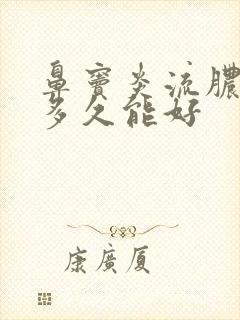 鼻窦炎流膿
多久能好
康廣厦